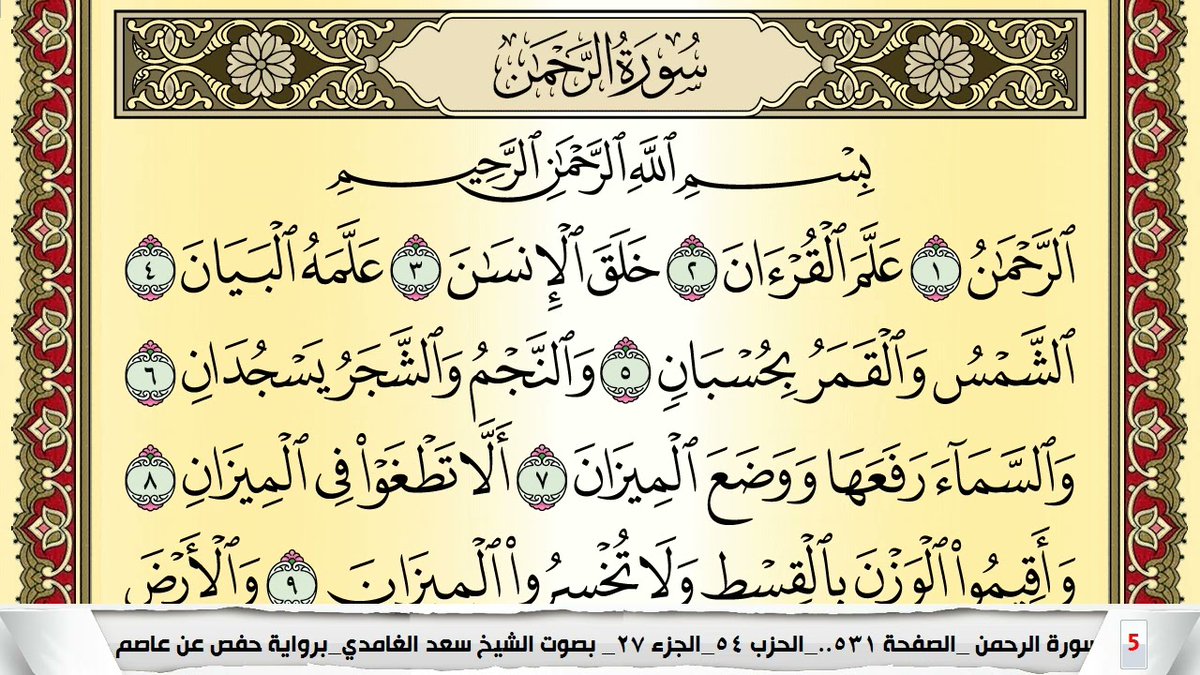 سُورَةُ الرَّحۡمَٰن
بِسۡمِ ٱللَّهِ ٱلرَّحۡمَٰنِ ٱلرَّحِيمِ
ٱلرَّحۡمَٰنُ ١ عَلَّمَ ٱلۡقُرۡءَانَ ٢ خَلَقَ ٱلۡإِنسَٰنَ ٣ عَلَّمَهُ ٱلۡبَيَانَ ٤
ٱلشَّمۡسُ وَٱلۡقَمَرُ بِحُسۡبَانٖ ٥ وَٱلنَّجۡمُ وَٱلشَّجَرُ يَسۡجُدَانِ ٦
وَٱلسَّمَآءَ رَفَعَهَا وَوَضَعَ ٱلۡمِيزَانَ ٧ أَلَّا تَطۡغَوۡاْ فِي ٱلۡمِيزَانِ ٨
وَأَقِيمُواْ ٱلۡوَزۡنَ بِٱلۡقِسۡطِ وَلَا تُخۡسِرُواْ ٱلۡمِيزَانَ ٩ وَٱلۡأَرۡضَ
5 سورة الرحمن _الصفحة ٥٣١.._الحزب ٥٤_الجزء ٢٧_ بصوت الشيخ سعد الغامدي_برواية حفص عن عاصم